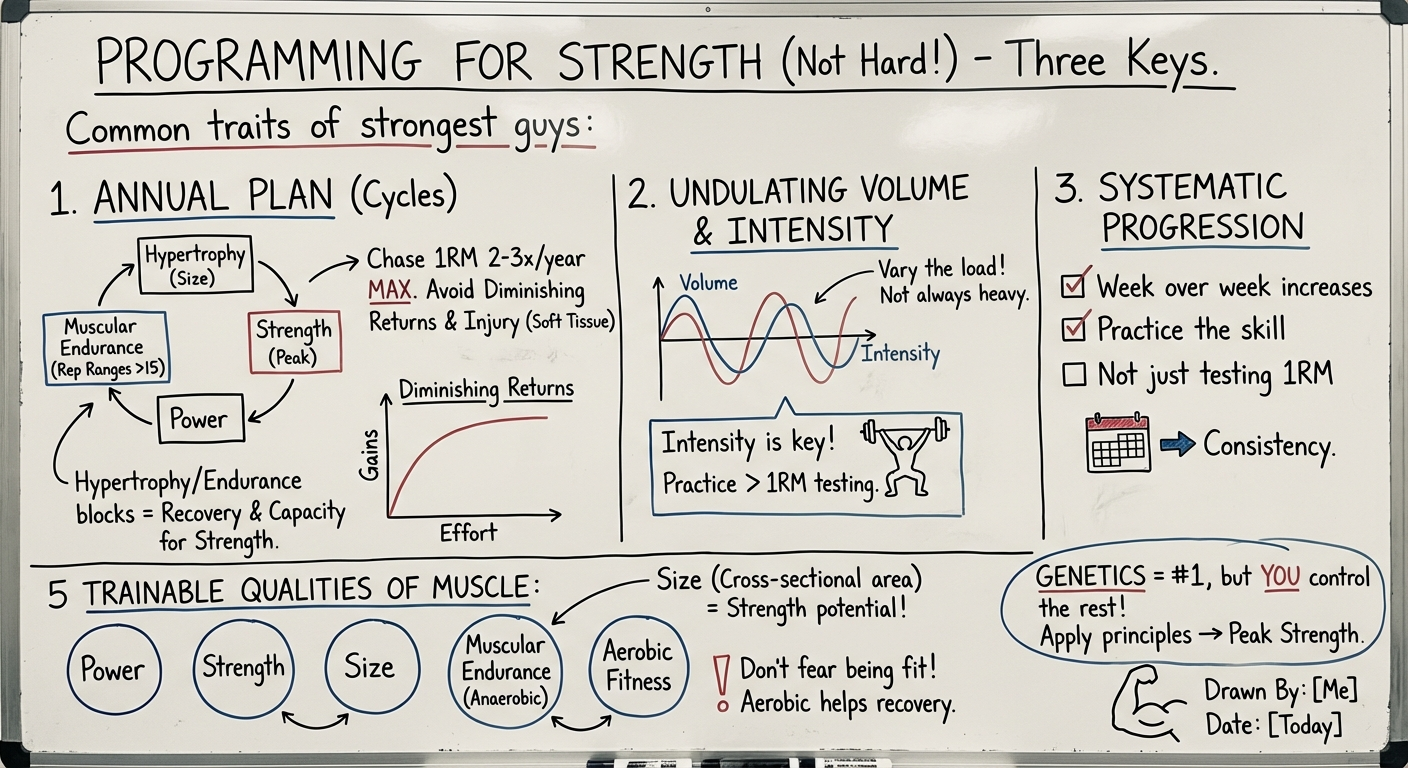 PROGRAMMING FOR STRENGTH (Not Hard!) – Three Keys.
Common traits of strongest guys:
1. ANNUAL PLAN (Cycles)
Hypertrophy
(Size)
Strength
(Peak)
Power
Muscular
Endurance
(Rep Ranges >15)
Chase 1RM 2-3x/year
MAX. Avoid Diminishing
Returns & Injury (Soft Tissue)
Hypertrophy/Endurance
blocks = Recovery & Capacity
for Strength.
Diminishing Returns
Gains
Effort
2. UNDULATING VOLUME
& INTENSITY
Volume
Vary the load!
Not always heavy.
Intensity
Intensity is key!
Practice > 1RM testing.
3. SYSTEMATIC
PROGRESSION
Week over week increases
Practice the skill
Not just testing 1RM
Consistency.
5 TRAINABLE QUALITIES OF MUSCLE:
Power
Strength
Size
Muscular
Endurance
(Anaerobic)
Aerobic
Fitness
Size (Cross-sectional area)
= Strength potential!
! Don't fear being fit!
Aerobic helps recovery.
GENETICS = #1, but YOU control
the rest!
Apply principles → Peak Strength.
Drawn By: [Me]
Date: [Today]